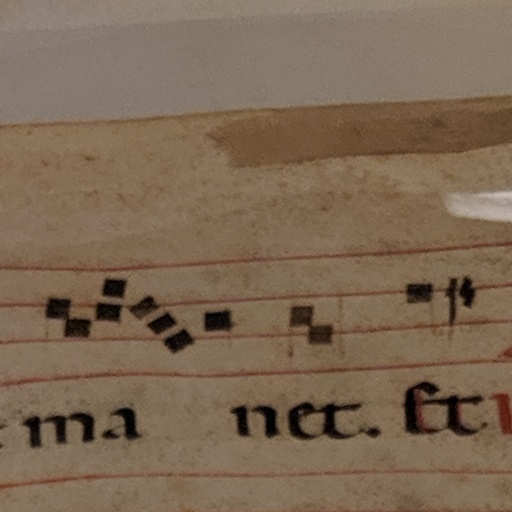 ma net. Et